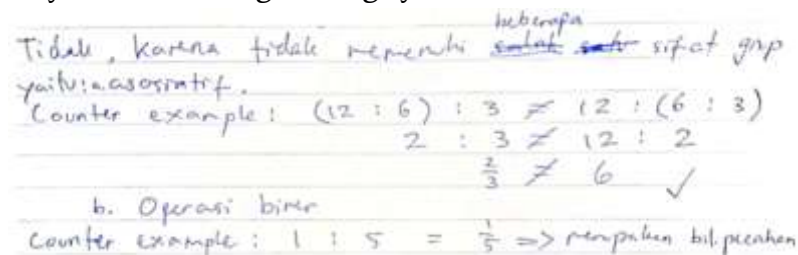 beberapa
Tidak, karena tidak memenuhi salah satu sifat grup
yaitu: a. asosiatif.
Counter example : (12 : 6) : 3 ≠ 12 : (6 : 3)
2 : 3 ≠ 12 : 2
2/3 ≠ 6 ✓
b. Operasi biner
Counter example : 1 : 5 = 1/5 => merupakan bil. pecahan